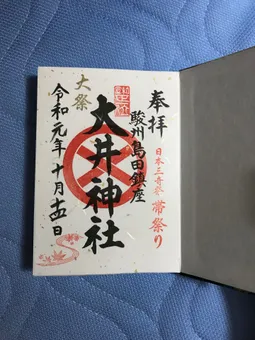 奉拝
日本三奇祭 帯祭り
駿州島田鎮座
大井神社
大祭
令和元年十月十四日